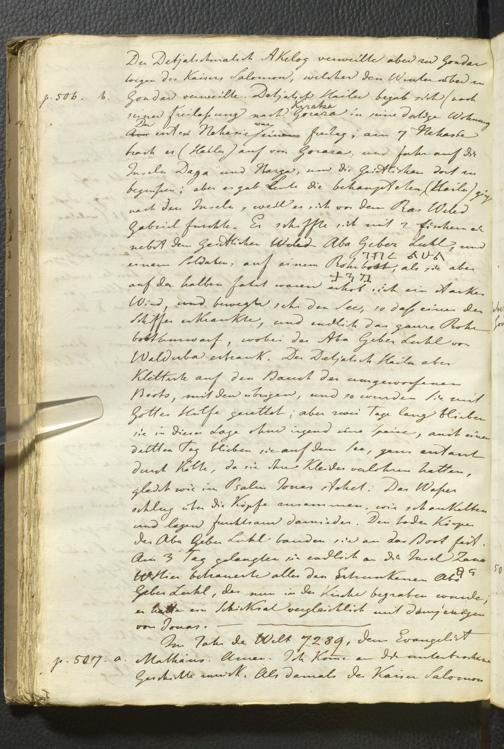 Der Detjatschmatsch Akelog verweilte aber zu Gondar
wegen des Kaisers Salomon, welcher den Winter über in
p. 506. b. Gondar verweilte. Detjatsch Hailu begab sich (nach
seiner Freilassung nach Gorasa in seine dortige Wohnung
Keratza
Am ersten Nahasie war Freitag; am 7 Nahasse
brach er (Hailu) auf von Gorasa, und fuhr auf die
Inseln Daga und Narga, um die Geistlichen dort zu
begrüssen; aber es gab Leute die behaupteten (Hailu) ging
nach den Inseln, weil er sich vor dem Ras Weled
Gabriel furchte. Er schiffte sich mit 2 Fischern ein
nebst den Geistlichen Weled Aba Geber Lechl, und
einem Soldaten, auf einem Rohrboot; als sie aber
auf der halben Fahrt waren erhob sich ein starker
Wind, und bewegte sehr den See, so dass einer der
Schiffer erkrankte, und endlich das ganze Rohr
boot umwarf, wobei der Aba Geber Lechl von
Waldubba ertrank. Der Detjatsch Hailu aber
kletterte auf den Bauch des umgeworfenen
Boots, mit den übrigen, und so wurden sie mit
Gottes Hülfe gerettet; aber zwei Tage lang blieben
sie in dieser Lage ohne irgend eine Speise, und einen
dritten Tag blieben sie auf dem See, ganz erstarrt
durch Kälte, da sie ihre Kleider verlohren hatten,
gleich wie im Psalm Jonas stehet. Das Wasser
schlug über die Köpfe zusammen, sie schaukelten
und lagen furchtsam darnieder. Den toden Körper
des Aba Geber Lechl banden sie an das Boot fest.
Am 3 Tag gelangten sie endlich an die Insel Zana
Hier betrauerte alles den Ertrunkenen Aba
Geber Lechl, der nun in der Kirche begraben wurde;
er hatte ein Schicksal vergleichlich mit demjenigen
von Jonas.
Im Jahr der Welt 7289, dem Evangelist
p. 507. a. Mathäus. Amen. Ich komme an die unterbrochene
Geschichte zurück. Als damals der Kaiser Salomon